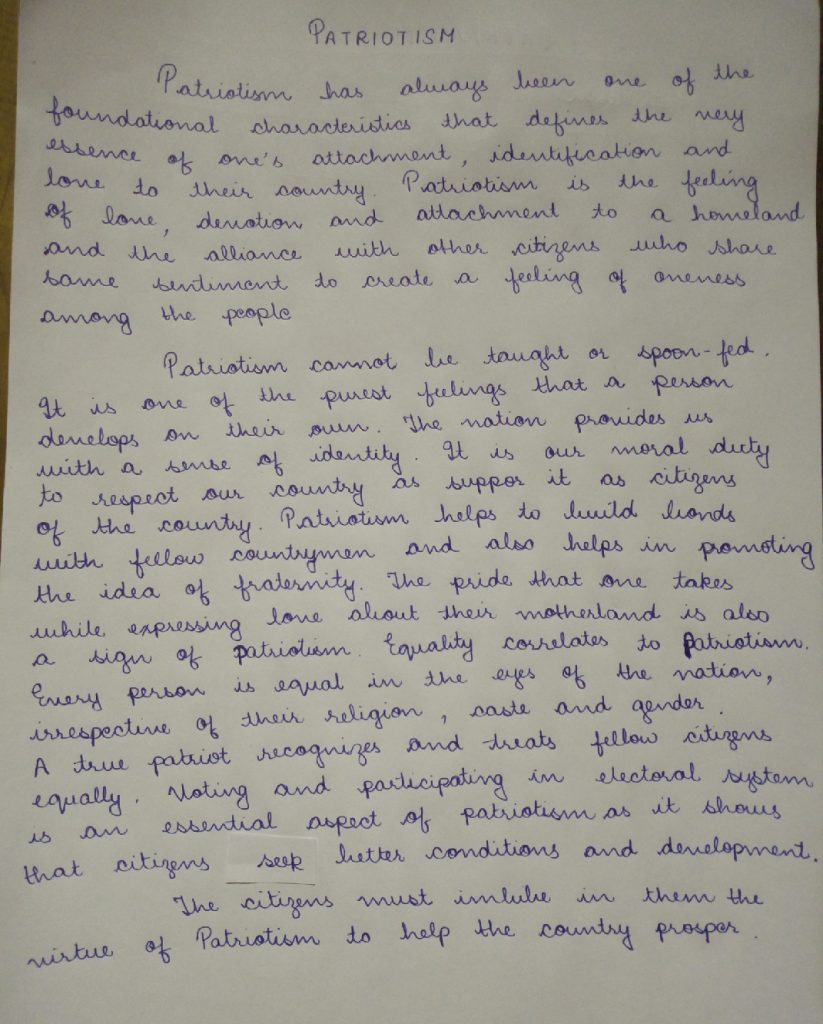 PATRIOTISM
Patriotism has always been one of the
foundational characteristics that defines the very
essence of one's attachment, identification and
love to their country. Patriotism is the feeling
of love, devotion and attachment to a homeland
and the alliance with other citizens who share
same sentiment to create a feeling of oneness
among the people
Patriotism cannot be taught or spoon-fed.
It is one of the purest feelings that a person
develops on their own. The nation provides us
with a sense of identity. It is our moral duty
to respect our country as suppor it as citizens
of the country. Patriotism helps to build bonds
with fellow countrymen and also helps in promoting
the idea of fraternity. The pride that one takes
while expressing love about their motherland is also
a sign of patriotism. Equality correlates to Patriotism.
Every person is equal in the eyes of the nation,
irrespective of their religion, caste and gender.
A true patriot recognizes and treats fellow citizens
equally. Voting and participating in electoral system
is an essential aspect of patriotism as it shows
that citizens seek better conditions and development.
The citizens must imbibe in them the
virtue of Patriotism to help the country prosper.